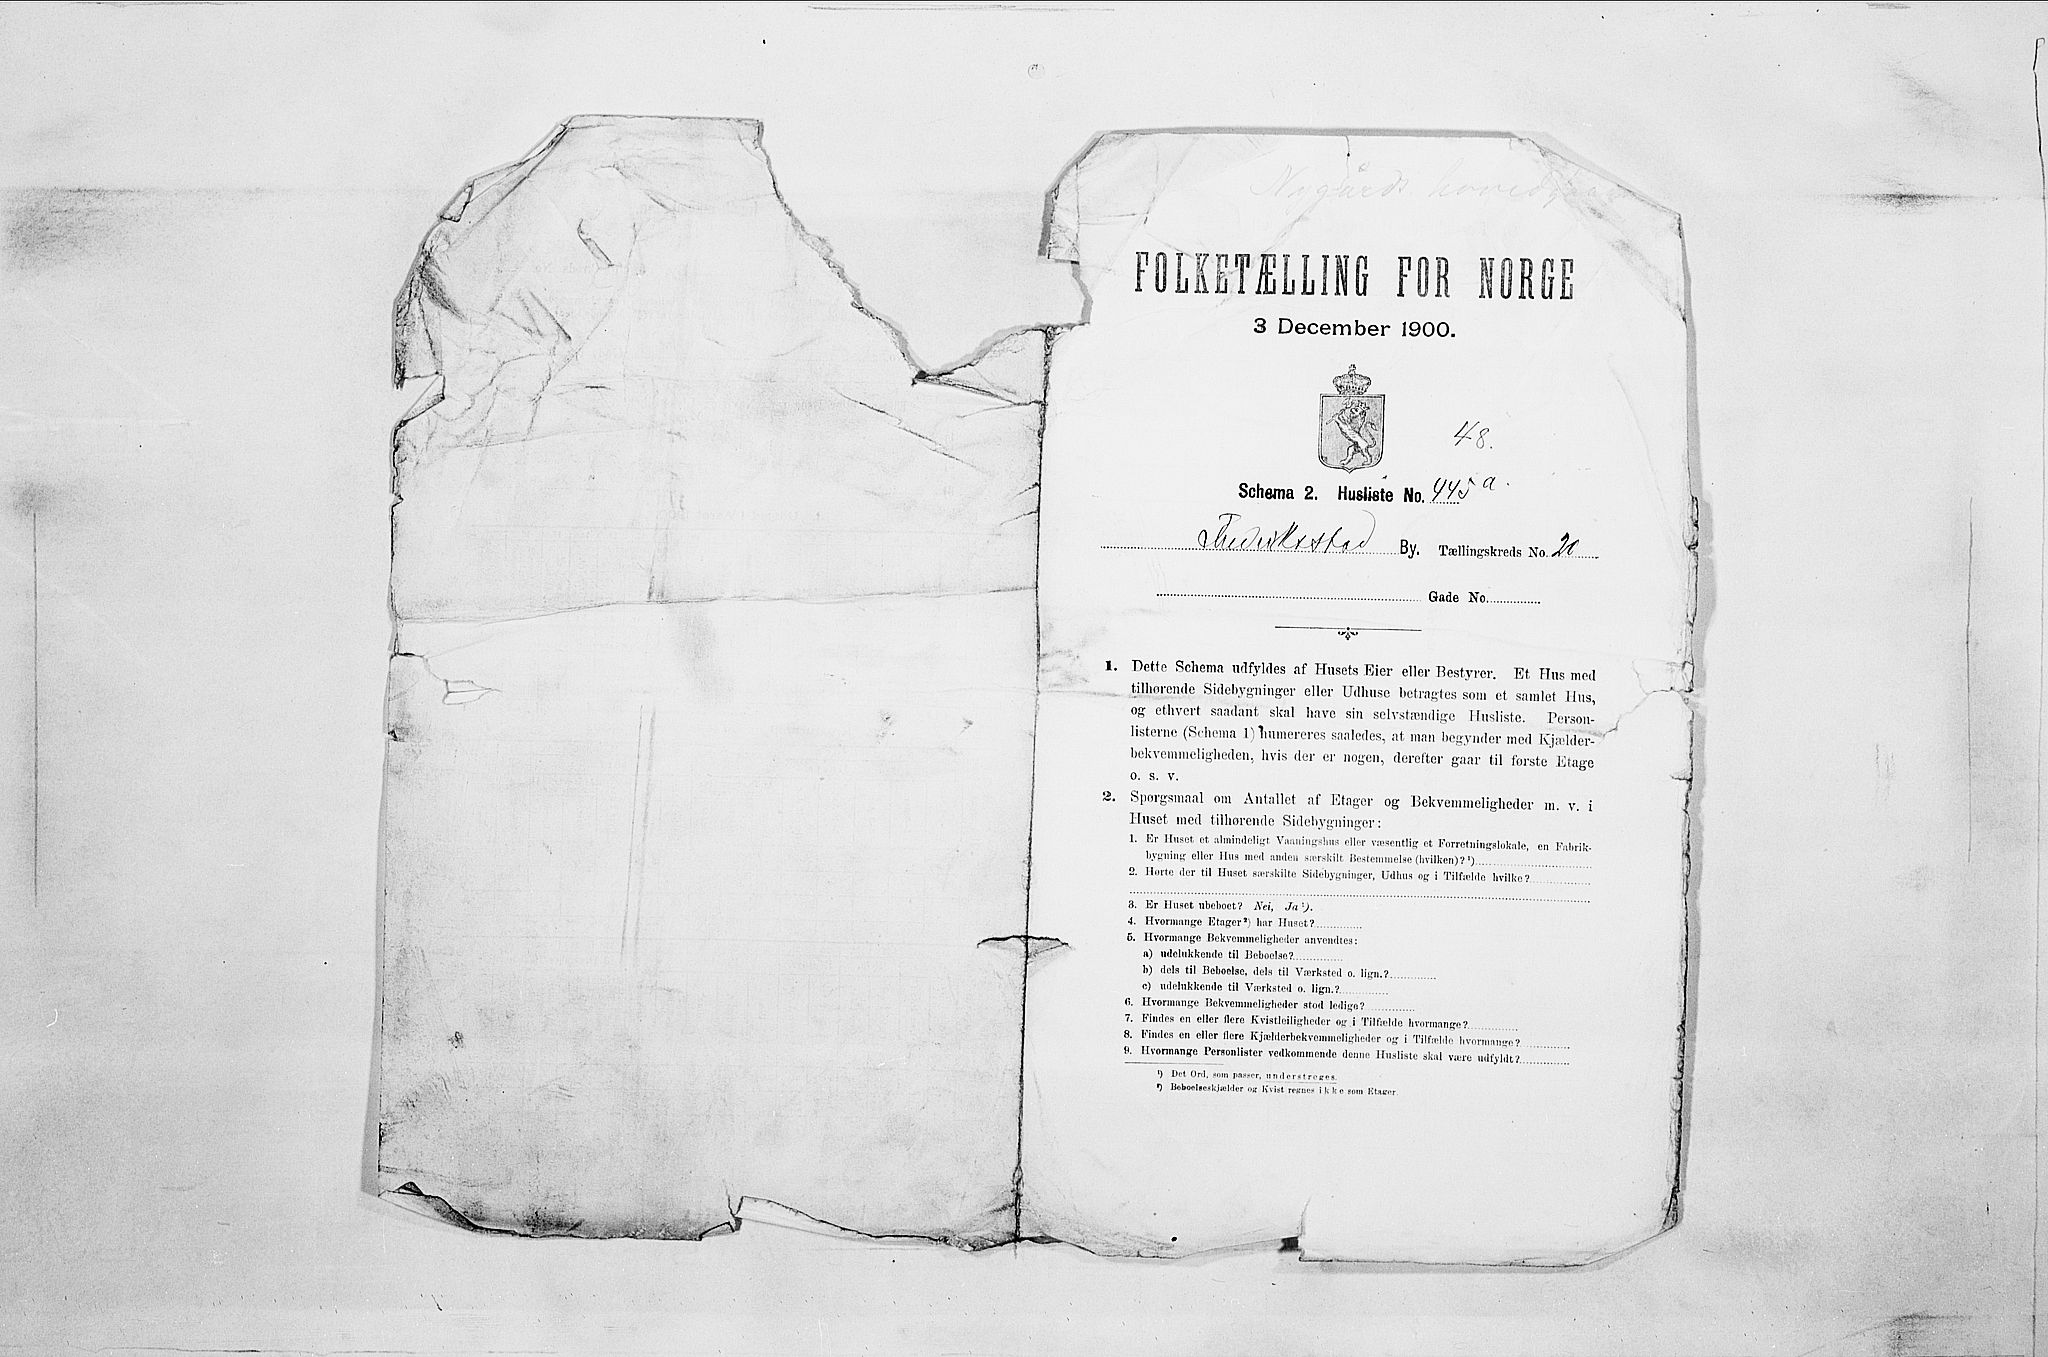 Nygårds hovedgaard
FOLKETÆLLING FOR NORGE
3 December 1900.
48.
Schema 2. Husliste No. 445 a.
Frederiksstad By. Tællingskreds No. 20
Gade No.
1. Dette Schema udfyldes af Husets Eier eller Bestyrer. Et Hus med
tilhørende Sidebygninger eller Udhuse betragtes som et samlet Hus,
og ethvert saadant skal have sin selvstændige Husliste. Person-
listerne (Schema 1) numereres saaledes, at man begynder med Kjælder-
bekvemmeligheden, hvis der er nogen, derefter gaar til første Etage
o. s. v.
2. Spørgsmaal om Antallet af Etager og Bekvemmeligheder m. v. i
Huset med tilhørende Sidebygninger:
1. Er Huset et almindeligt Vaaningshus eller væsentlig et Forretningslokale, en Fabrik-
bygning eller Hus med anden særskilt Bestemmelse (hvilken)? ¹)
2. Hørte der til Huset særskilte Sidebygninger, Udhus og i Tilfælde hvilke?
3. Er Huset ubeboet? Nei, Ja ¹).
4. Hvormange Etager ²) har Huset?
5. Hvormange Bekvemmeligheder anvendtes:
a) udelukkende til Beboelse?
b) dels til Beboelse, dels til Værksted o. lign.?
c) udelukkende til Værksted o. lign.?
6. Hvormange Bekvemmeligheder stod ledige?
7. Findes en eller flere Kvistleiligheder og i Tilfælde hvormange?
8. Findes en eller flere Kjælderbekvemmeligheder og i Tilfælde hvormange?
9. Hvormange Personlister vedkommende denne Husliste skal være udfyldt?
¹) Det Ord, som passer, understreges.
²) Beboelseskjælder og Kvist regnes ikke som Etager.